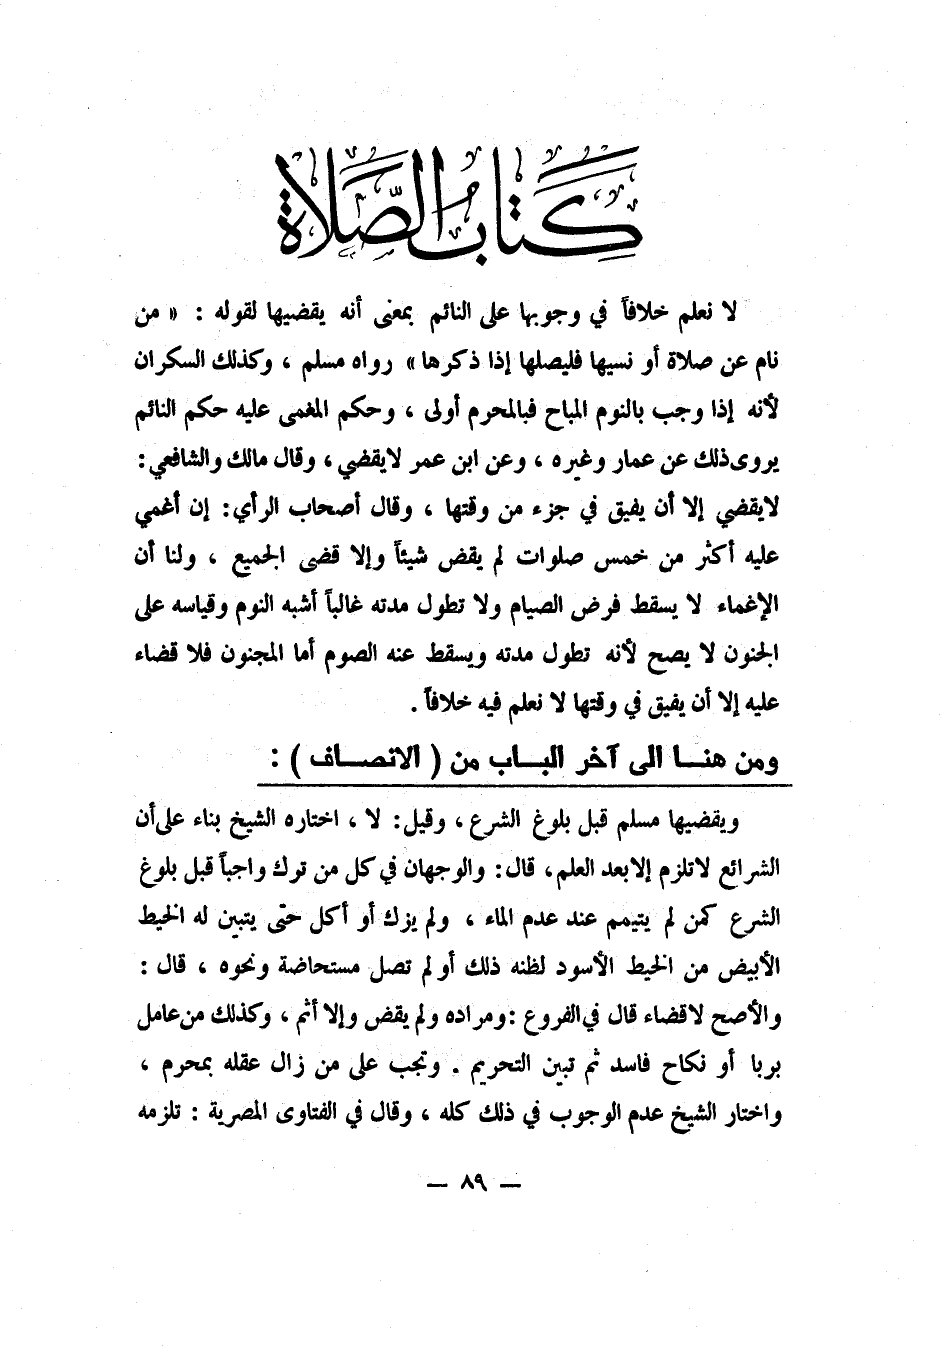 كتاب الصلاة
لا نعلم خلافاً في وجوبها على النائم بمعنى أنه يقضيها لقوله : « من
نام عن صلاة أو نسيها فليصلها إذا ذكرها » رواه مسلم ، وكذلك السكران
لأنه إذا وجب بالنوم المباح فبالمحرم أولى ، وحكم المغمى عليه حكم النائم
يروى ذلك عن عمار وغيره ، وعن ابن عمر لايقضي ، وقال مالك والشافعي :
لايقضي إلا أن يفيق في جزء من وقتها ، وقال أصحاب الرأي : إن أغمي
عليه أكثر من خمس صلوات لم يقض شيئاً وإلا قضى الجميع ، ولنا أن
الإغماء لا يسقط فرض الصيام ولا تطول مدته غالباً أشبه النوم وقياسه على
الجنون لا يصح لأنه تطول مدته ويسقط عنه الصوم أما المجنون فلا قضاء
عليه إلا أن يفيق في وقتها لا نعلم فيه خلافاً .
ومن هنا الى آخر الباب من ( الانصاف ) :
ويقضيها مسلم قبل بلوغ الشرع ، وقيل : لا ، اختاره الشيخ بناء على أن
الشرائع لاتلزم إلابعد العلم ، قال : والوجهان في كل من ترك واجباً قبل بلوغ
الشرع كمن لم يتيمم عند عدم الماء ، ولم يزك أو أكل حتى يتبين له الخيط
الأبيض من الخيط الأسود لظنه ذلك أو لم تصل مستحاضة ونحوه ، قال :
والأصح لاقضاء قال في الفروع : ومراده ولم يقض وإلا أثم ، وكذلك من عامل
بربا أو نكاح فاسد ثم تبين التحريم . وتجب على من زال عقله بمحرم ،
واختار الشيخ عدم الوجوب في ذلك كله ، وقال في الفتاوى المصرية : تلزمه
— ٨٩ —